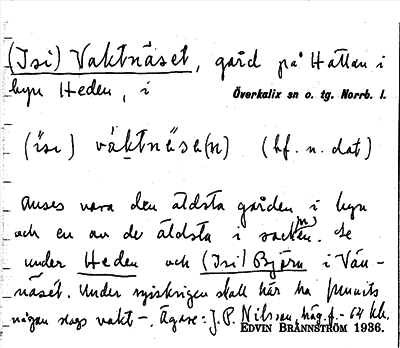 (Isi) Vaktnäset, gård på Hattan i
byn Heden, i Överkalix sn o. tg. Norrb. l.
(isi) váktnäse(n) (bf. n. dat)
Anses vara den äldsta gården i byn
och en av de äldsta i socken(n). Se
under Heden och (Isi) Björn i Vän-
näset. Under ryskrigen skall här ha funnits
någon slags vakt. Ägare: J. P. Nilsson, häg. f. - 64 kh.
EDVIN BRÄNNSTRÖM 1936.